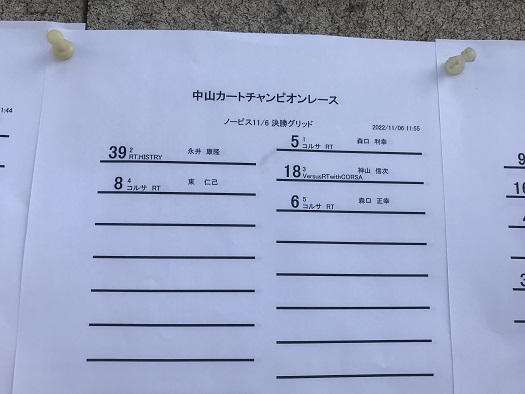 中山カートチャンピオンレース
ノービス11/6 決勝グリッド
2022/11/06 11:55
5 1 森口 利幸
コルサ RT
39 2 永井 康隆
RT.HISTRY
18 3 神山 信次
VersusRTwithCORSA
8 4 東 仁己
コルサ RT
6 5 森口 正幸
コルサ RT
1:44
9
16
3